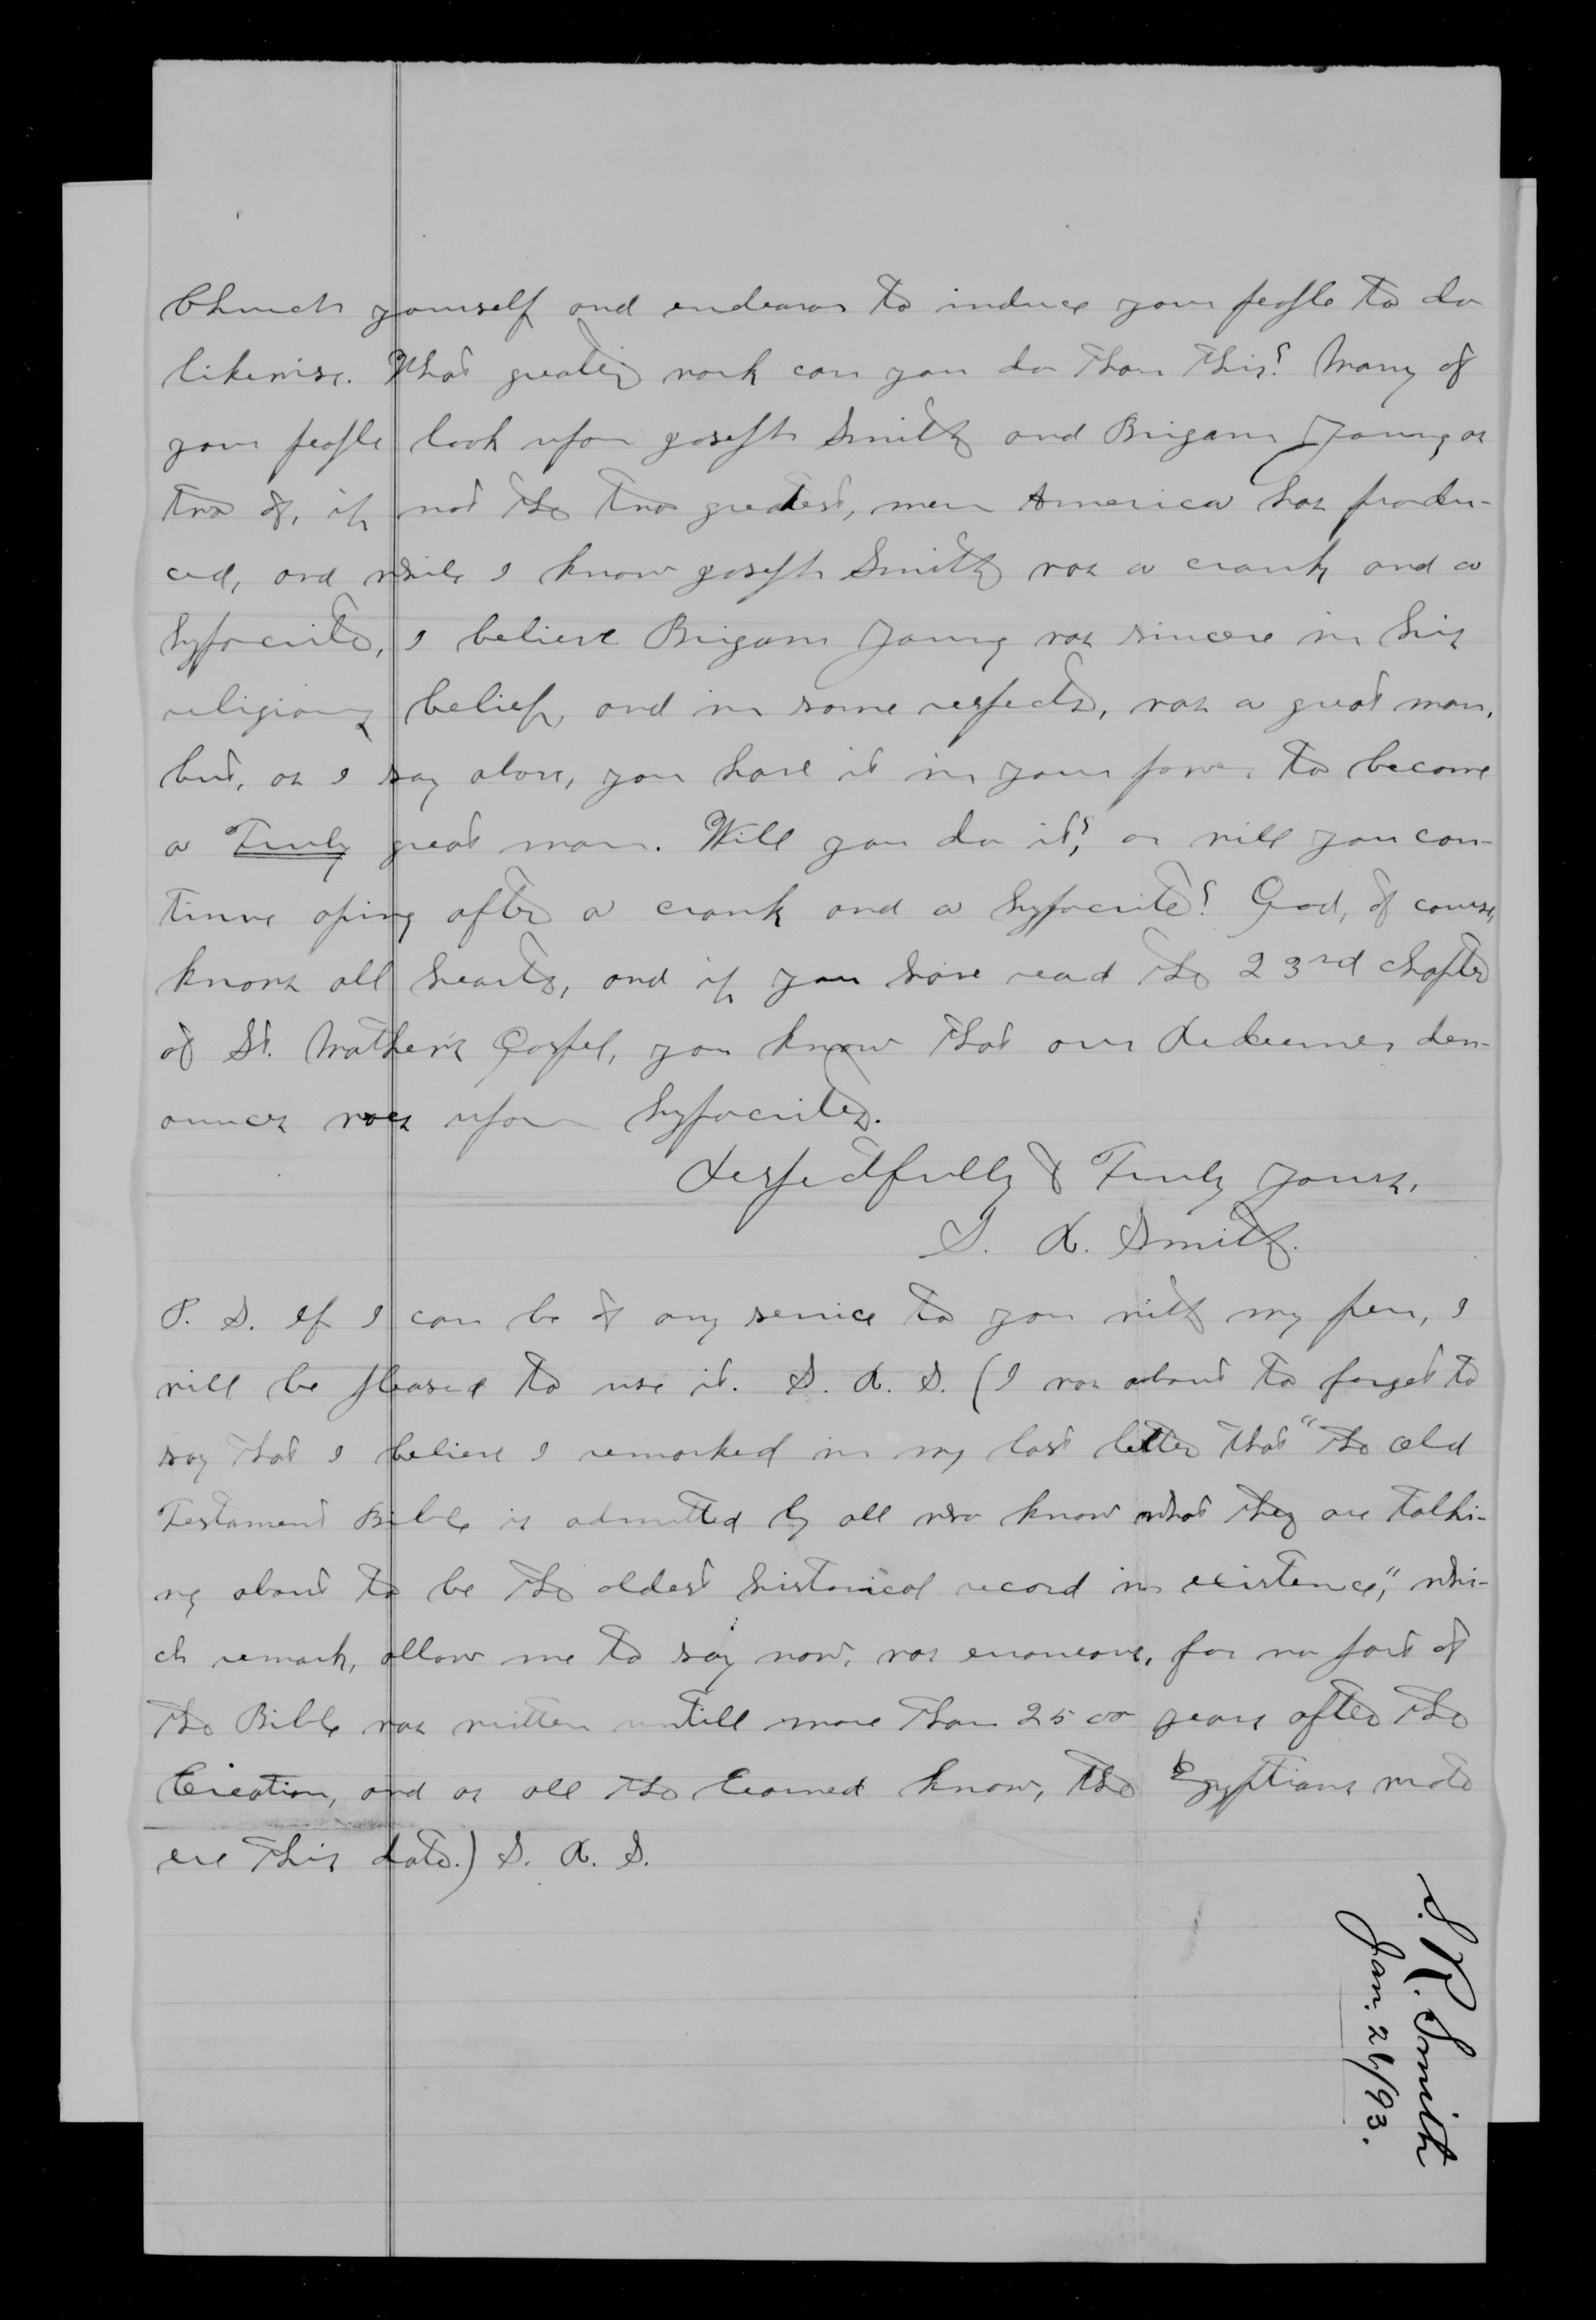 Church yourself and endeavor to induce your people to do
likewise. What greater work can you do than this? Many of
your people look upon Joseph Smith and Brigam Young as
two of, if not the two greatest, men America has produ-
ced, and while I know Joseph Smith was a crank and a
hypocrite, I believe Brigam Young was sincere in his
religious belief, and in some respects, was a great man,
but, as I say above, you have it in your power to become
a Truly great man. Will you do it?, or will you con-
tinue aping after a crank and a hypocrite? God, of course,
knows all hearts, and if you have read the 23rd chapter
of St. Mathew's Gospel, you know that our Redeemer den-
ounces woes upon hypocrites.
Respectfully & Truly yours,
S. R. Smith.
P. S. If I can be of any service to you with my pen, I
will be pleased to use it. S. R. S. (I was about to forget to
say that I believe I remarked in my last letter that "the old
Testament Bible is admitted by all who know what they are talki-
ng about to be the oldest historical record in existence," whi-
ch remark, allow me to say now, was erroneous, for no part of
the Bible was written untill more than 2500 years after the
Creation, and as all the learned know, the Egyptians wrote
ere this date.) S. R. S.
S. R. Smith
Jan. 26/93.